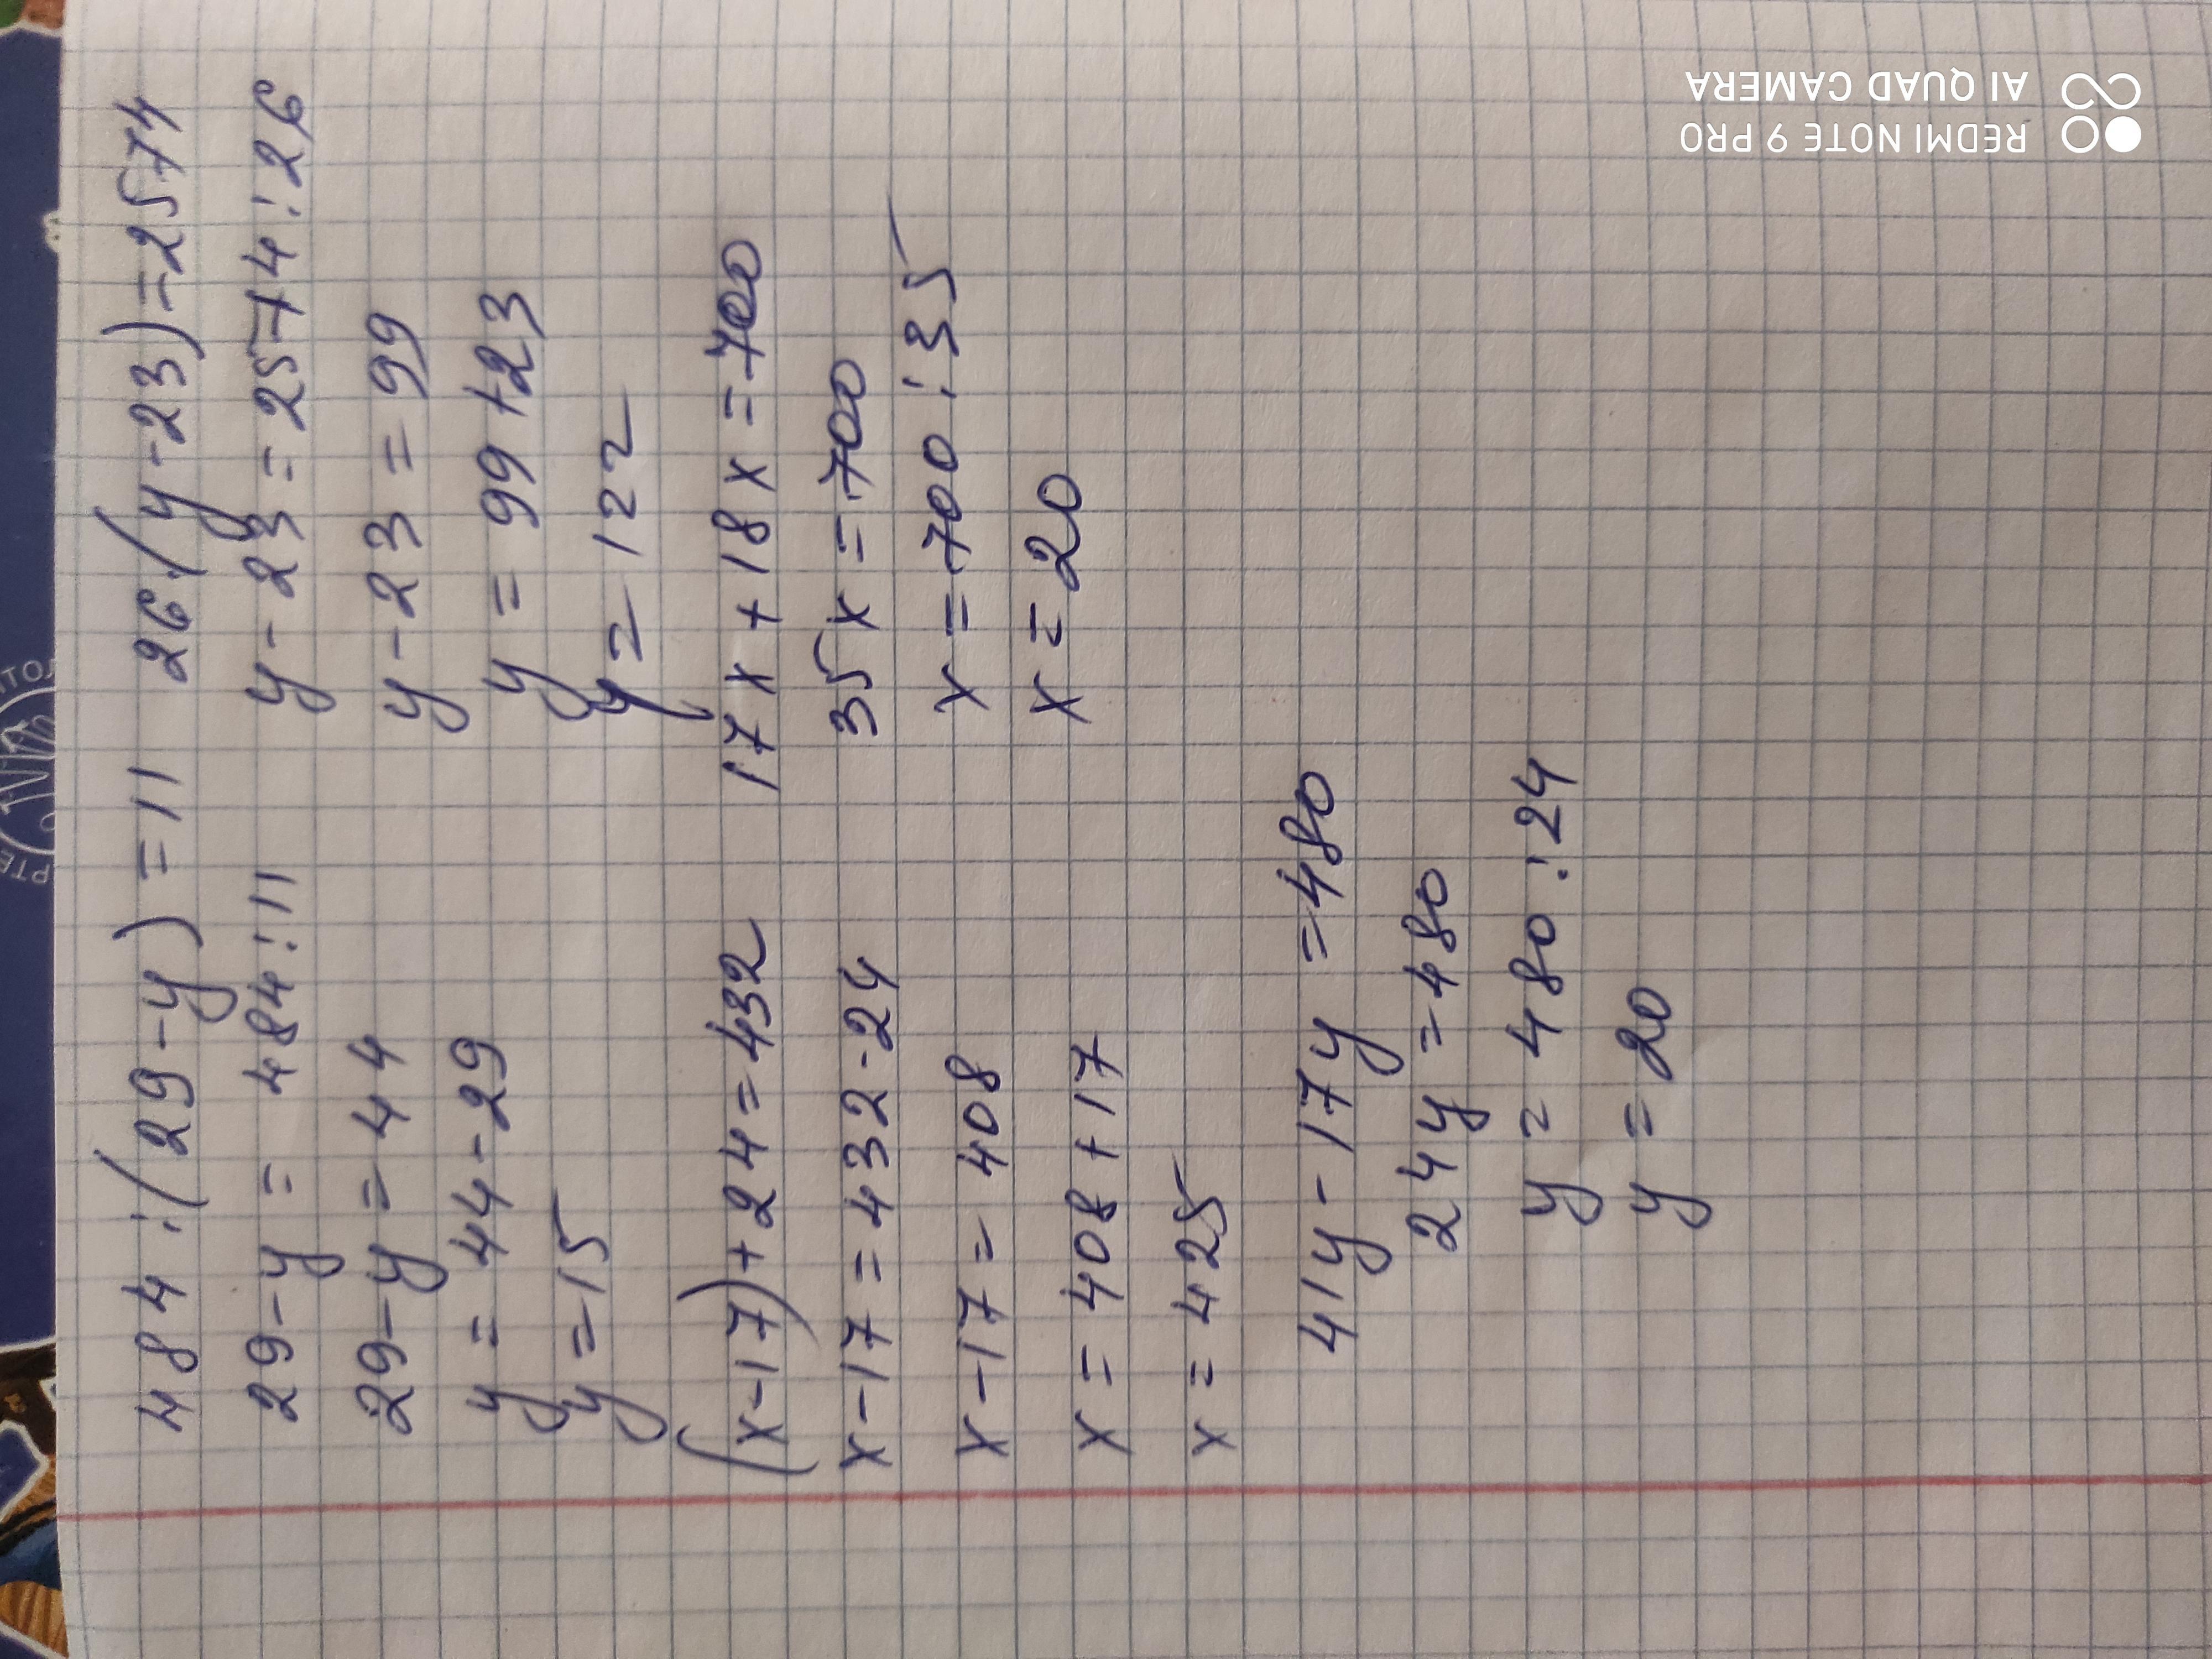 484:(29-y)=11
29-y = 484:11
29-y=44
y = 44-29
y=15
26·(y-23)=2574
y-23=2574:26
y-23=99
y=99+23
y=122
(x-17)+24=432
x-17=432-24
x-17=408
x=408+17
x=425
17x+18x=700
35x=700
x=700:35
x=20
41y-17y=480
24y=480
y=480:24
y=20
REDMI NOTE 9 PRO
AI QUAD CAMERA